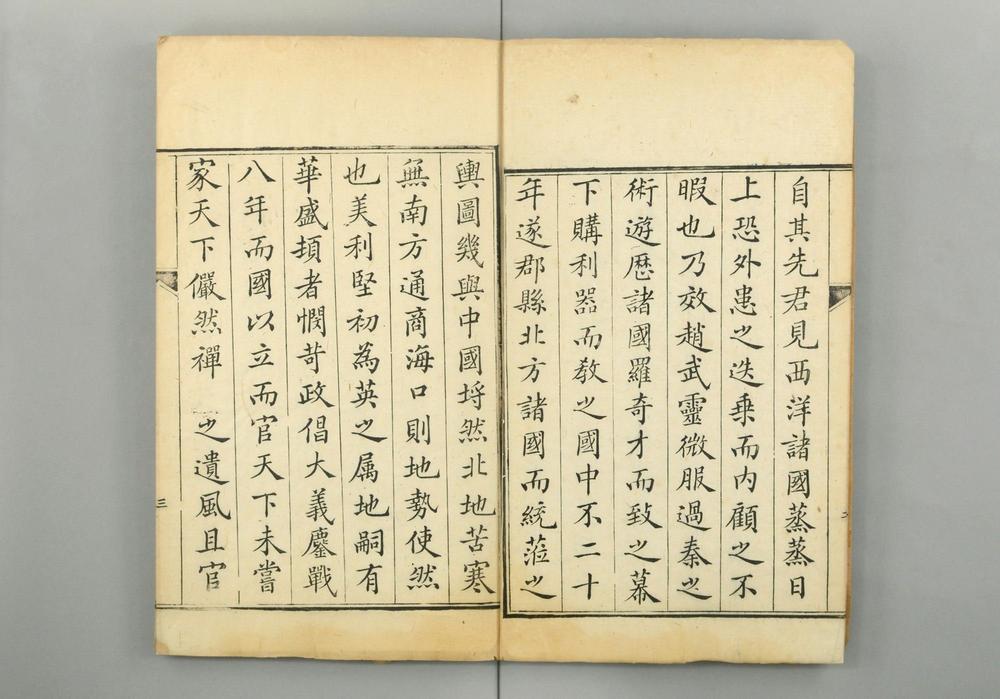 自其先君見西洋諸國蒸蒸日
上恐外患之迭乗而内顧之不
暇也乃效趙武靈微服過秦之
術遊歴諸國羅奇才而致之幕
下購利器而教之國中不二十
年遂郡縣北方諸國而統蒞之
輿圖幾與中國埒然北地苦寒
無南方通商海口則地勢使然
也美利堅初為英之属地嗣有
華盛頓者憫苛政倡大義鏖戰
八年而國以立而官天下未嘗
家天下儼然禪之遺風且官
二
三